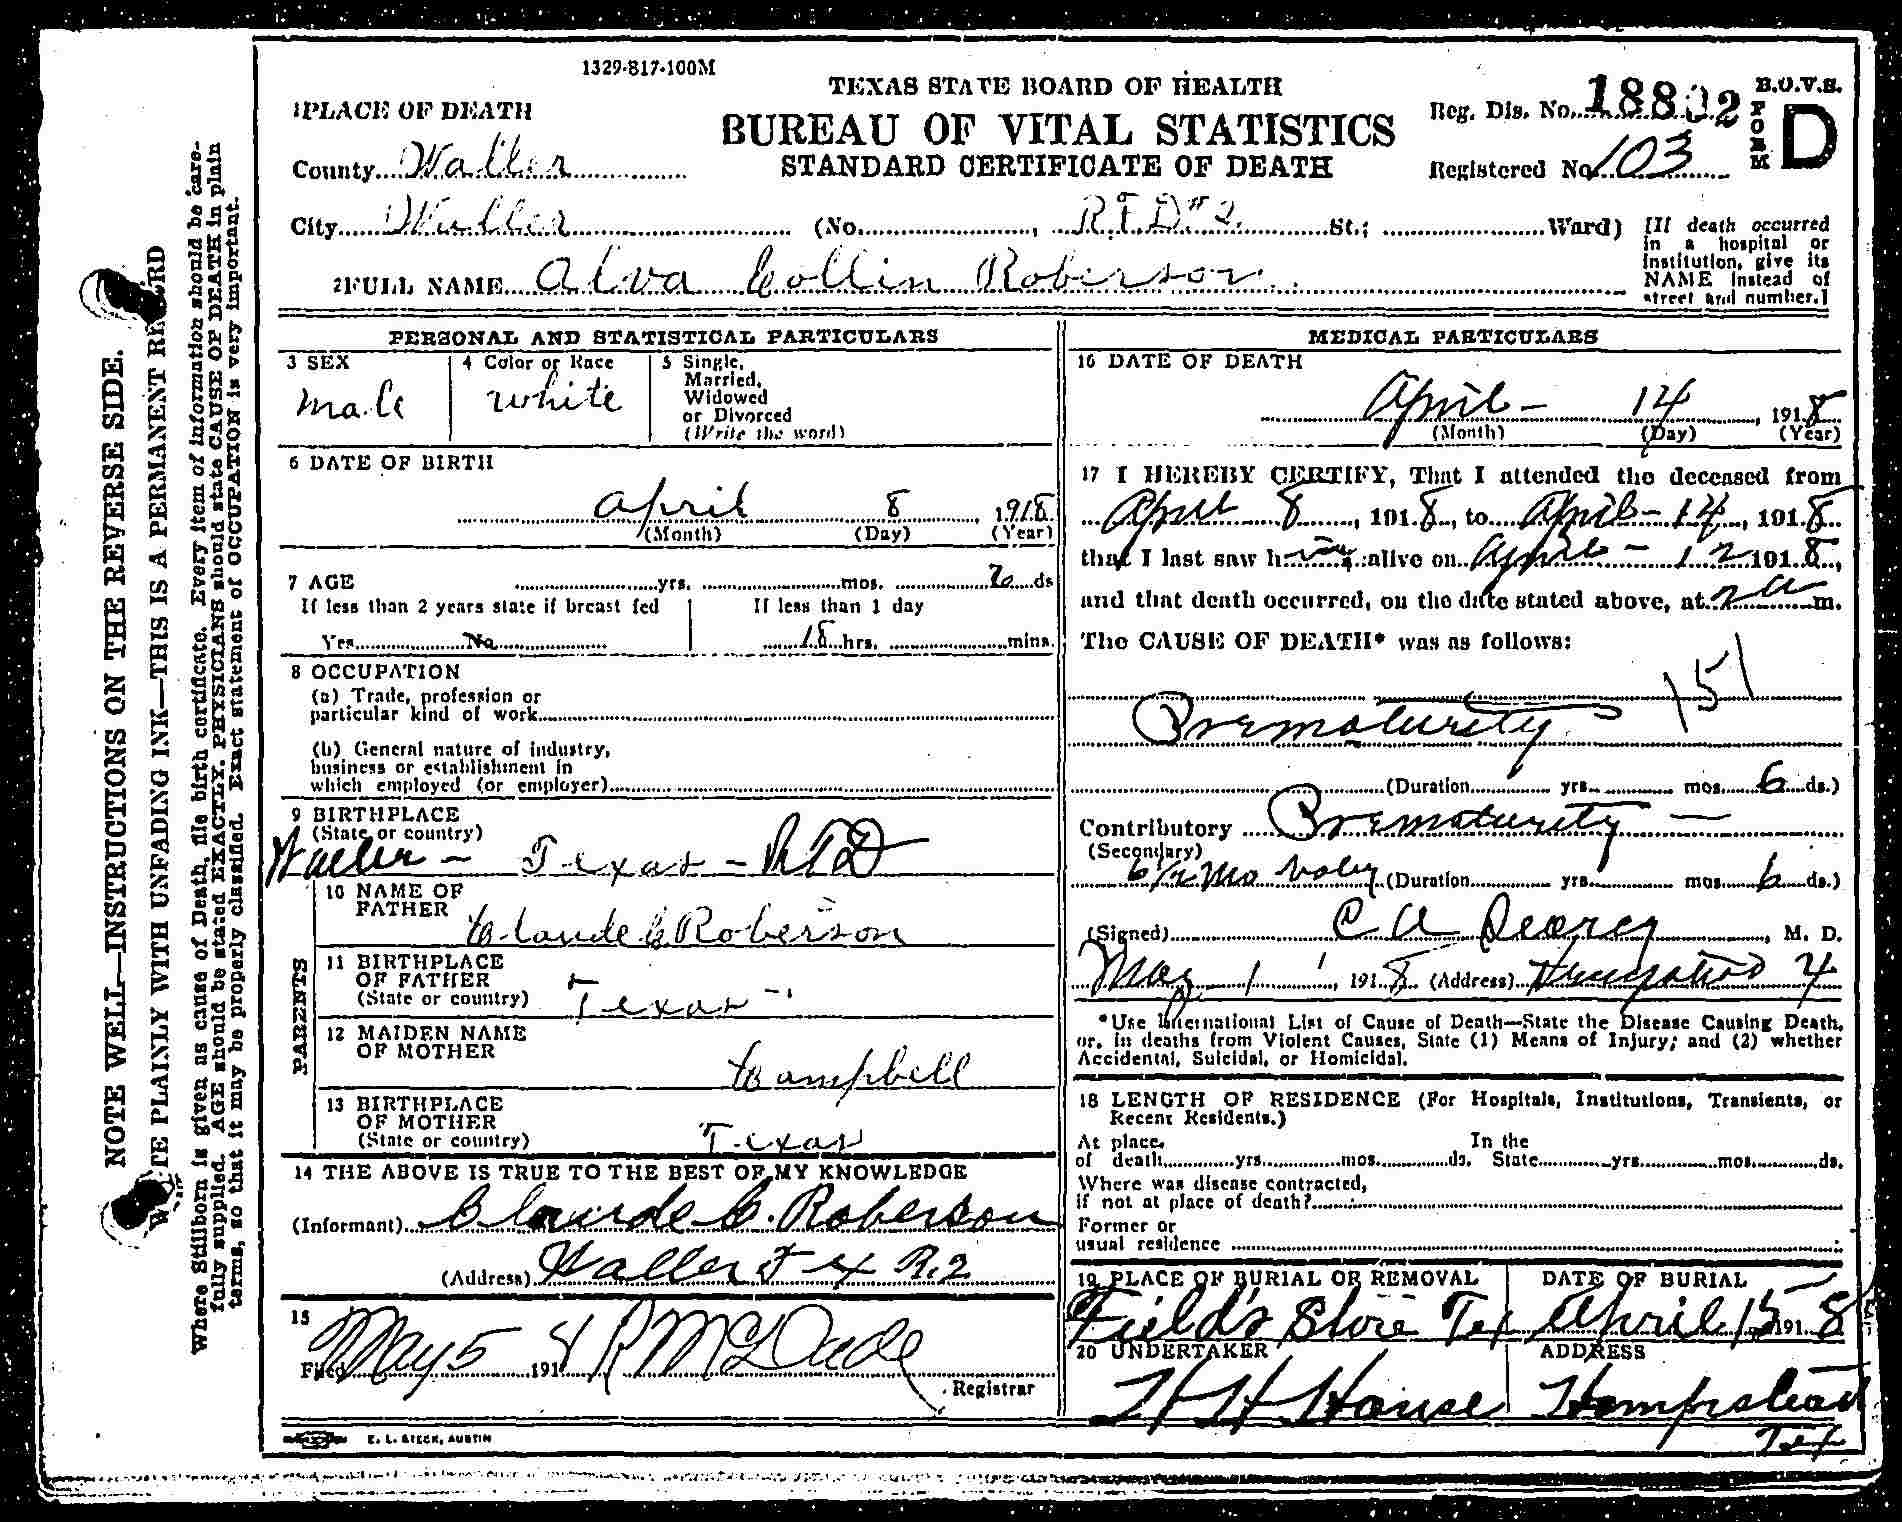 1329-817-100M
TEXAS STATE BOARD OF HEALTH
BUREAU OF VITAL STATISTICS
STANDARD CERTIFICATE OF DEATH
Reg. Dis. No. 18802
Registered No. 103
B.O.V.S.
FORM D
1 PLACE OF DEATH
County Waller
City Waller (No. , R.F.D #2 St.; Ward)
[If death occurred in a hospital or institution, give its NAME instead of street and number.]
2 FULL NAME Alva Collin Roberson
PERSONAL AND STATISTICAL PARTICULARS
3 SEX
male
4 Color or Race
white
5 Single,
Married,
Widowed
or Divorced
(Write the word)
6 DATE OF BIRTH
April 8, 1918
(Month) (Day) (Year)
7 AGE yrs. mos. 6 ds
If less than 2 years state if breast fed
Yes No
If less than 1 day
18 hrs. mins.
8 OCCUPATION
(a) Trade, profession or
particular kind of work
(b) General nature of industry,
business or establishment in
which employed (or employer)
9 BIRTHPLACE
(State or country)
Waller - Texas - RFD
PARENTS
10 NAME OF
FATHER
Claude C Roberson
11 BIRTHPLACE
OF FATHER
(State or country)
Texas
12 MAIDEN NAME
OF MOTHER
Campbell
13 BIRTHPLACE
OF MOTHER
(State or country)
Texas
14 THE ABOVE IS TRUE TO THE BEST OF MY KNOWLEDGE
(Informant) Claude C. Roberson
(Address) Waller Tex R.2
15
Filed May 5 1918 R McDade
Registrar
E. L. STECK, AUSTIN
MEDICAL PARTICULARS
16 DATE OF DEATH
April - 14, 1918
(Month) (Day) (Year)
17 I HEREBY CERTIFY, That I attended the deceased from
April 8, 1918, to April - 14, 1918
that I last saw him alive on April - 12 1918,
and that death occurred, on the date stated above, at 2 a m.
The CAUSE OF DEATH* was as follows:
151
Prematurity
(Duration yrs. mos. 6 ds.)
Contributory Prematurity -
(Secondary)
6 1/2 Mo baby (Duration yrs. mos. 6 ds.)
(Signed) C A , M. D.
May 1, 1918 (Address)
*Use International List of Cause of Death—State the Disease Causing Death,
or, in deaths from Violent Causes, State (1) Means of Injury; and (2) whether
Accidental, Suicidal, or Homicidal.
18 LENGTH OF RESIDENCE (For Hospitals, Institutions, Transients, or
Recent Residents.)
At place
of death yrs. mos. ds.
In the
State yrs. mos. ds.
Where was disease contracted,
if not at place of death?
Former or
usual residence
19 PLACE OF BURIAL OR REMOVAL
Field's Store Tex
DATE OF BURIAL
April 15 1918
20 UNDERTAKER
H H House
ADDRESS
Hempstead
Tex
NOTE WELL—INSTRUCTIONS ON THE REVERSE SIDE.
WRITE PLAINLY WITH UNFADING INK—THIS IS A PERMANENT RECORD
Where Stillborn is given as cause of Death, file birth certificate. Every item of information should be care-
fully supplied. AGE should be stated EXACTLY. PHYSICIANS should state CAUSE OF DEATH in plain
terms, so that it may be properly classified. Exact statement of OCCUPATION is very important.